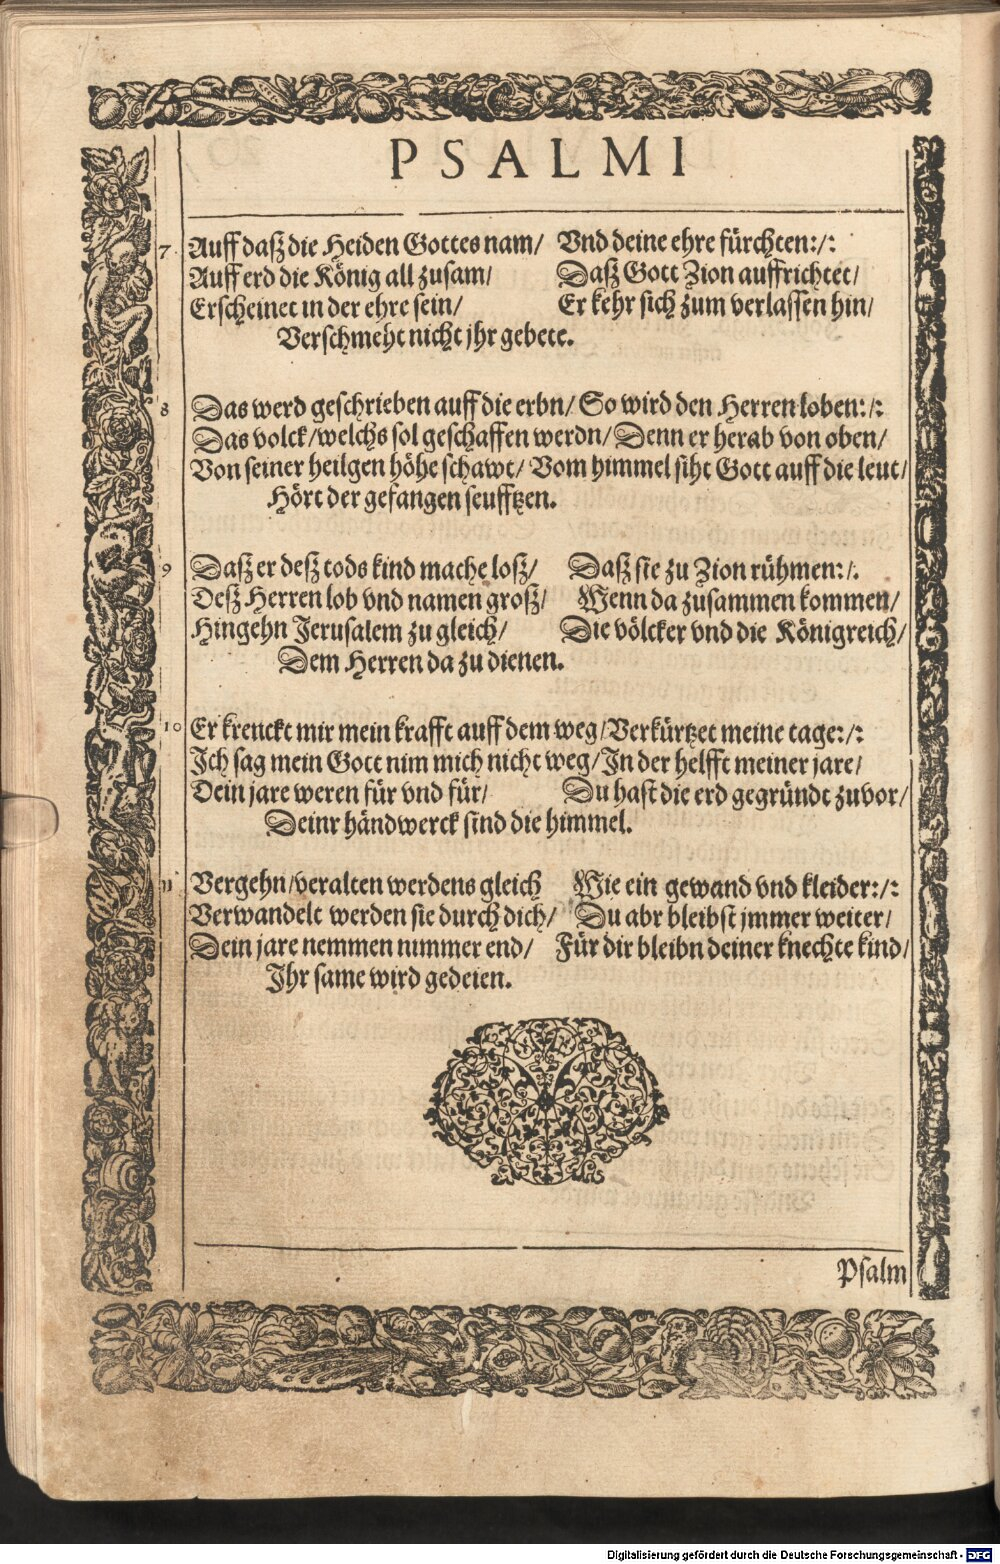 PSALMI
7 Auff daß die Heiden Gottes nam/ Vnd deine ehre fürchten:/:
Auff erd die König all zusam/ Daß Gott Zion auffrichtet/
Erscheinet in der ehre sein/ Er kehr sich zum verlassen hin/
Verschmeht nicht jhr gebete.
8 Das werd geschrieben auff die erbn/ So wird den Herren loben:/:
Das volck/welchs sol geschaffen werdn/ Denn er herab von oben/
Von seiner heilgen höhe schawt/ Vom himmel siht Gott auff die leut/
Hört der gefangen seufftzen.
9 Daß er deß tods kind mache loß/ Daß sie zu Zion rühmen:/.
Deß Herren lob vnd namen groß/ Wenn da zusammen kommen/
Hingehn Jerusalem zu gleich/ Die völcker vnd die Königreich/
Dem Herren da zu dienen.
10 Er krenckt mir mein krafft auff dem weg/Verkürtzet meine tage:/:
Ich sag mein Gott nim mich nicht weg/In der helfft meiner jare/
Dein jare weren für vnd für/ Du hast die erd gegründt zuvor/
Deinr händwerck sind die himmel.
11 Vergehn/veralten werdens gleich Wie ein gewand vnd kleider:/:
Verwandelt werden sie durch dich/ Du abr bleibst jmmer weiter/
Dein jare nemmen nimmer end/ Für dir bleibn deiner knechte kind/
Ihr same wird gedeien.
Psalm
Digitalisierung gefördert durch die Deutsche Forschungsgemeinschaft - DFG